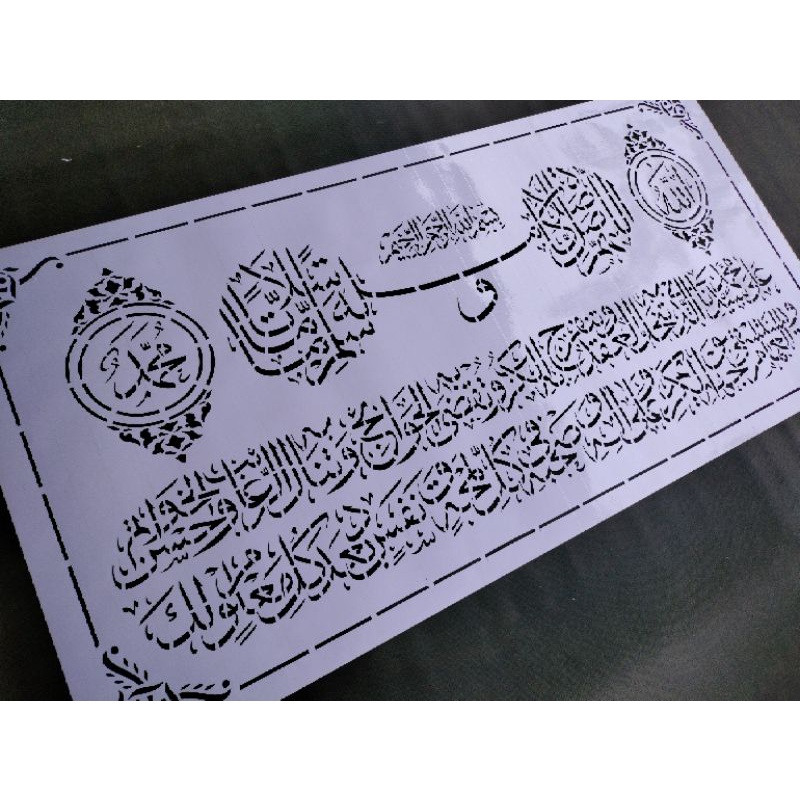 الله
بسم الله الرحمن الرحيم
اللهم صل صلاة كاملة و سلم سلاما تاما
محمد
على سيدنا محمد الذي تنحل به العقد وتنفرج به الكرب وتقضى به الحوائج وتنال به الرغائب وحسن الخواتم
ويستسقى الغمام بوجهه الكريم وعلى اله وصحبه في كل لمحة ونفس بعدد كل معلوم لك